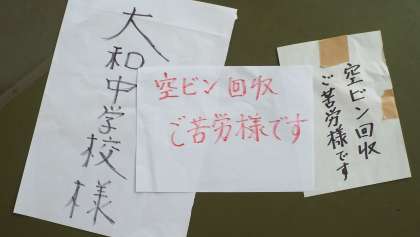 大和中学校様
空ビン回収
ご苦労様です
空ビン回収
ご苦労様です